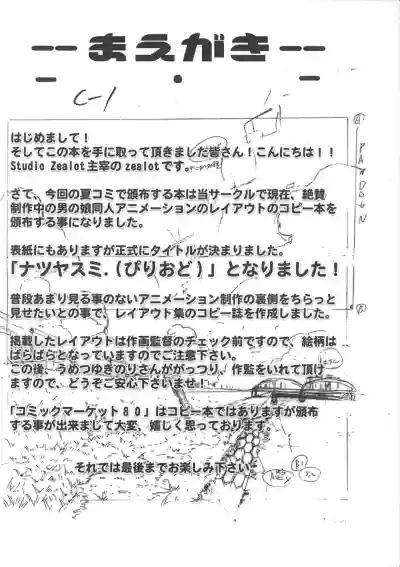 --まえがき--
C-1
はじめまして！
そしてこの本を手に取って頂きました皆さん！こんにちは！！
Studio Zealot主宰のzealotです。
さて、今回の夏コミで頒布する本は当サークルで現在、絶賛
制作中の男の娘同人アニメーションのレイアウトのコピー本を
頒布する事になりました。
表紙にもありますが正式にタイトルが決まりました。
「ナツヤスミ.(ぴりおど)」となりました！
普段あまり見る事のないアニメーション制作の裏側をちらっと
見せたいとの事で、レイアウト集のコピー誌を作成しました。
掲載したレイアウトは作画監督のチェック前ですので、絵柄は
ばらばらとなっていますのでご注意下さい。
この後、うめつゆきのりさんががっつり、作監をいれて頂け
ますので、どうぞご安心下さいませ！
「コミックマーケット８０」はコピー本ではありますが頒布
する事が出来まして大変、嬉しく思っております。
それでは最後までお楽しみ下さい。